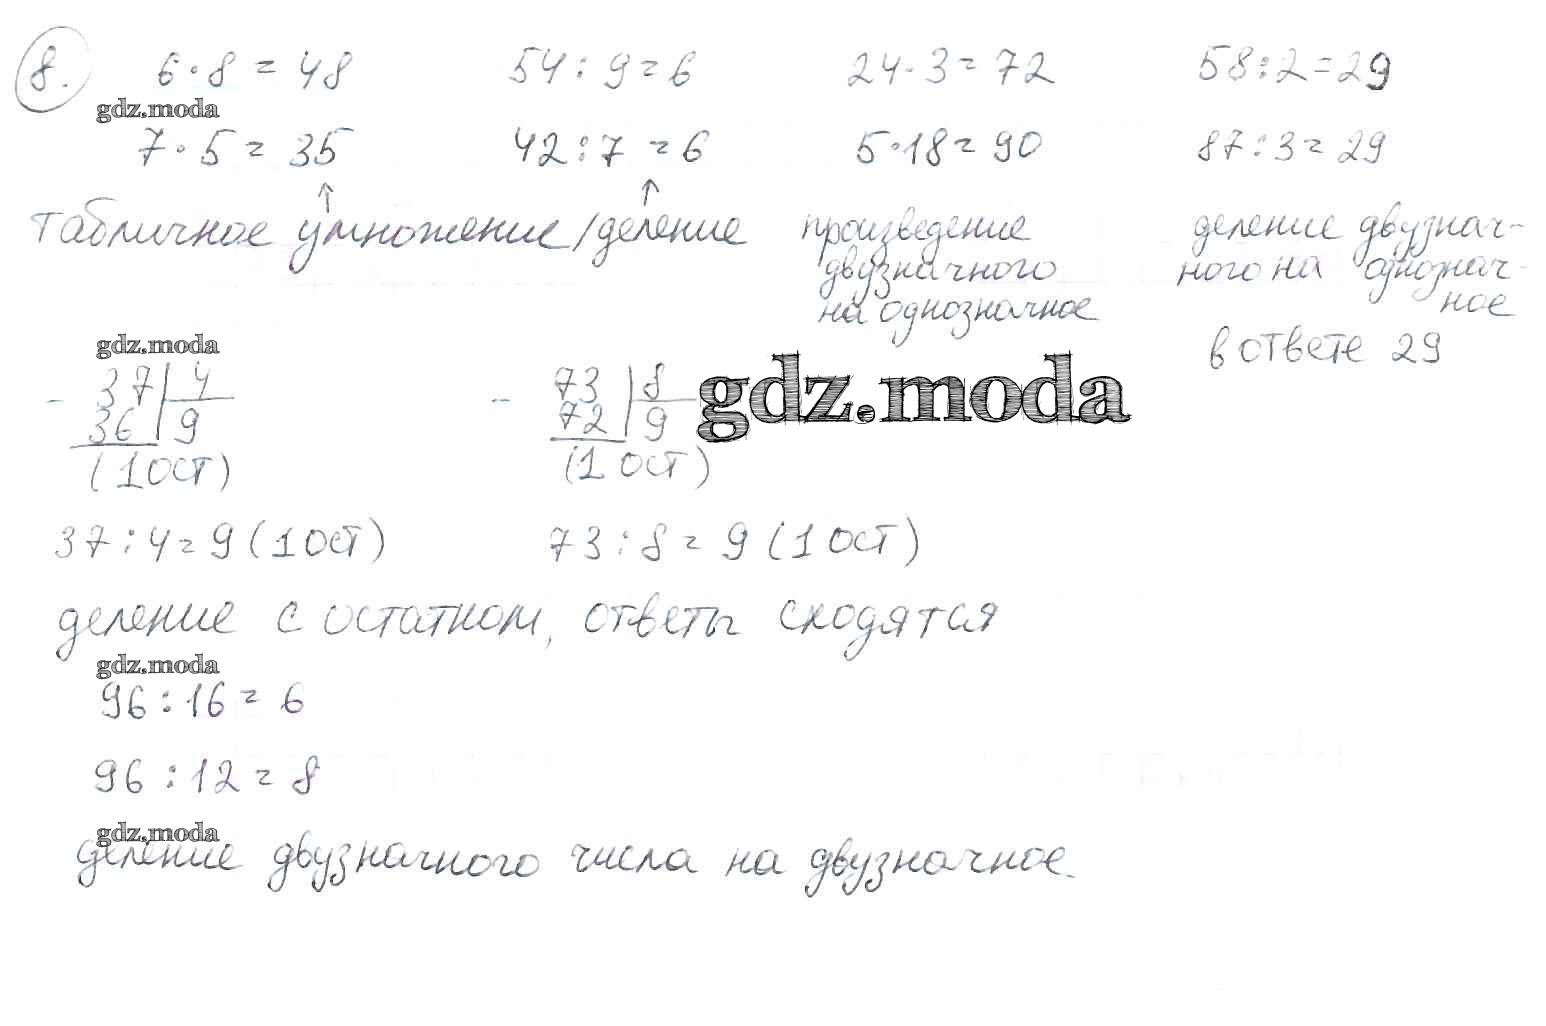 8. 6·8=48 54:9=6 24·3=72 58:2=29
gdz.moda
7·5=35 42:7=6 5·18=90 87:3=29
↑ ↑
табличное умножение/деление
произведение
двузначного
на однозначное
деление двузнач-
ного на однознач-
ное
в ответе 29
gdz.moda
- 37|4
36|9
(1 ост)
- 73|8
72|9
(1 ост)
gdz.moda
37:4=9(1 ост) 73:8=9(1 ост)
деление с остатком, ответы сходятся
gdz.moda
96:16=6
96:12=8
gdz.moda
деление двузначного числа на двузначное.